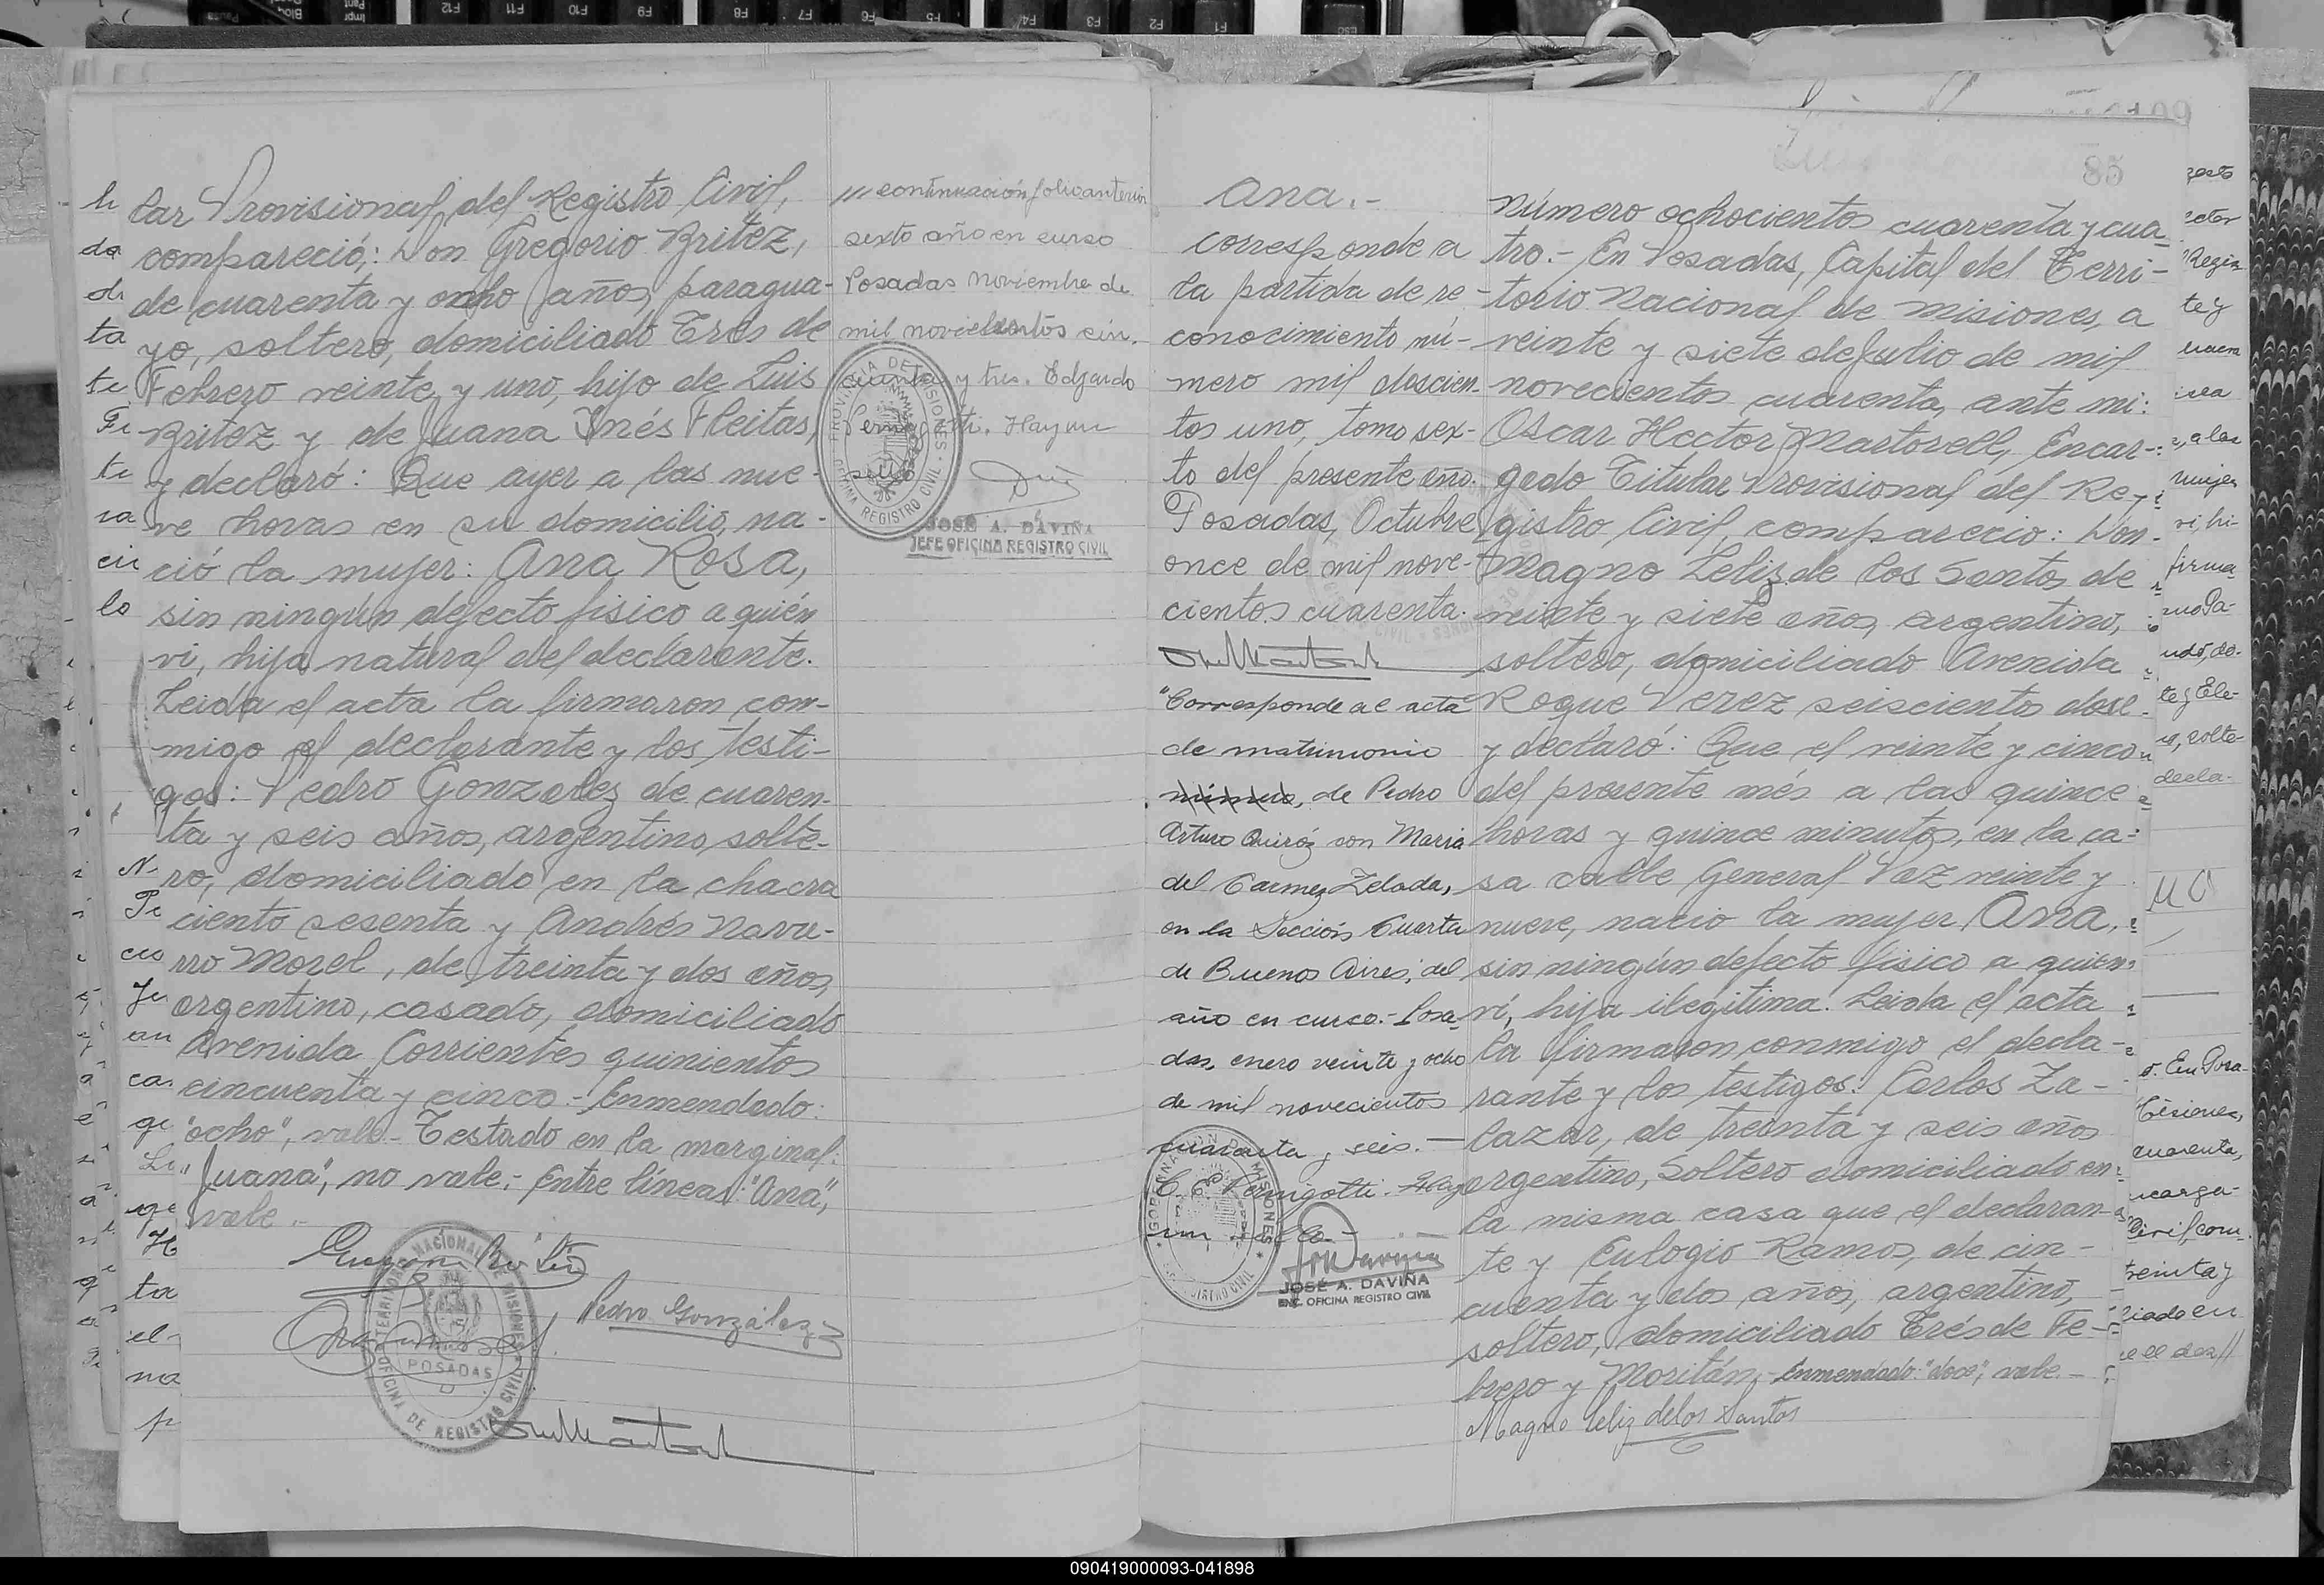 lar Provisional del Registro Civil,
compareció: Don Gregorio Britez,
de cuarenta y ocho años, paragua-
yo, soltero, domiciliado Tres de
Febrero veinte y uno, hijo de Luis
Britez y de Juana Inés Fleitas,
y declaró: Que ayer a las nue-
ve horas en su domicilio, na-
ció la mujer: Ana Rosa,
sin ningún defecto fisico a quién
vi, hija natural del declarante.
Leida el acta la firmaron con-
migo el declarante y los testi-
gos: Pedro Gonzalez de cuaren-
ta y seis años, argentino, solte-
ro, domiciliado en la chacra
ciento sesenta y Andrés Nava-
rro Morel, de treinta y dos años,
argentino, casado, domiciliado
Avenida Corrientes quinientos
cincuenta y cinco.- Enmendado:
"ocho", vale.- Testado en la marginal:
"Juana", no vale.- Entre líneas: "Ana",
vale.-
Pedro González
TERRITORIO NACIONAL DE MISIONES
POSADAS
OFICINA DE REGISTRO CIVIL
/// continuación folio anterior
sexto año en curso
Posadas Noviembre de
mil novecientos cin-
cuenta y tres. Edgardo
Hay un
PROVINCIA DE MISIONES
OFICINA REGISTRO CIVIL
JOSÉ A. DAVIÑA
JEFE OFICINA REGISTRO CIVIL
85
Ana.-
Corresponde a
la partida de re-
conocimiento nú-
mero mil doscien-
tos uno, tomo sex-
to del presente año.
Posadas, Octubre
once de mil nove-
cientos cuarenta.
"Corresponde al acta
de matrimonio
de Pedro
Arturo Quiróz con Maria
del Carmen Zelada,
en la Sección Cuarta
de Buenos Aires, del
año en curso.- Posa-
das, enero veinte y ocho
de mil novecientos
cuarenta y seis.-
C. E. Pernigotti. Hay
un sello.-
GOBERNACION DE MISIONES
REGISTRO CIVIL
JOSÉ A. DAVIÑA
ENC. OFICINA REGISTRO CIVIL
Número ochocientos cuarenta y cua-
tro.- En Posadas, Capital del Terri-
torio Nacional de Misiones, a
veinte y siete de Julio de mil
novecientos cuarenta, ante mi:
Oscar Hector Martorell, Encar-
gado Titular Provisional del Re-
gistro Civil, compareció: Don
Magno Leliz de los Santos de
veinte y siete años, argentino,
soltero, domiciliado Avenida
Roque Perez seiscientos doce
y declaró: Que el veinte y cinco
del presente més a las quince
horas y quince minutos, en la ca-
sa calle General Paz veinte y
nueve, nació la mujer Ana,
sin ningún defecto fisico a quien
ví, hija ilegitima. Leida el acta
la firmaron conmigo el decla-
rante y los testigos: Carlos Za-
lazar, de treinta y seis años
argentino, soltero domiciliado en
la misma casa que el declaran-
te y Eulogio Ramos, de cin-
cuenta y dos años, argentino,
soltero, domiciliado Trés de Fe-
brero y Moritán.- Enmendado: "doce", vale.-
Magno Leliz de los Santos
090419000093-041898